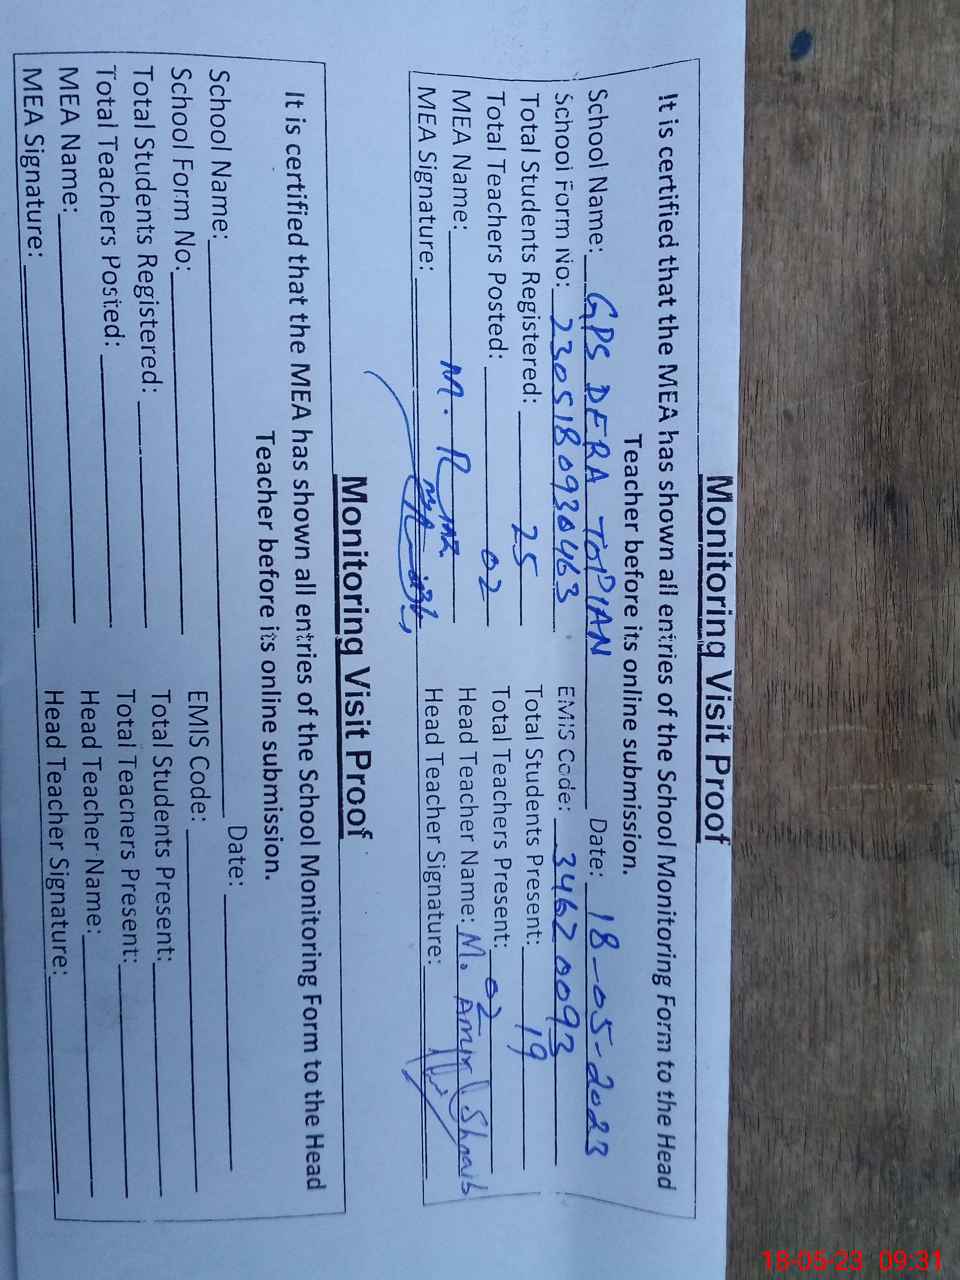 Monitoring Visit Proof
It is certified that the MEA has shown all entries of the School Monitoring Form to the Head
Teacher before its online submission.
School Name: GPS DERA TOPIAN Date: 18-05-2023
School Form No: 230518093046 3 EMIS Code: 34620093
Total Students Registered: 25 Total Students Present: 19
Total Teachers Posted: 02 Total Teachers Present: 02
MEA Name: M. Head Teacher Name: M. Shoaib
MEA Signature: Head Teacher Signature:
Monitoring Visit Proof
It is certified that the MEA has shown all entries of the School Monitoring Form to the Head
Teacher before its online submission.
School Name: Date:
School Form No: EMIS Code:
Total Students Registered: Total Students Present:
Total Teachers Posted: Total Teachers Present:
MEA Name: Head Teacher Name:
MEA Signature: Head Teacher Signature:
18-05-23 09:31